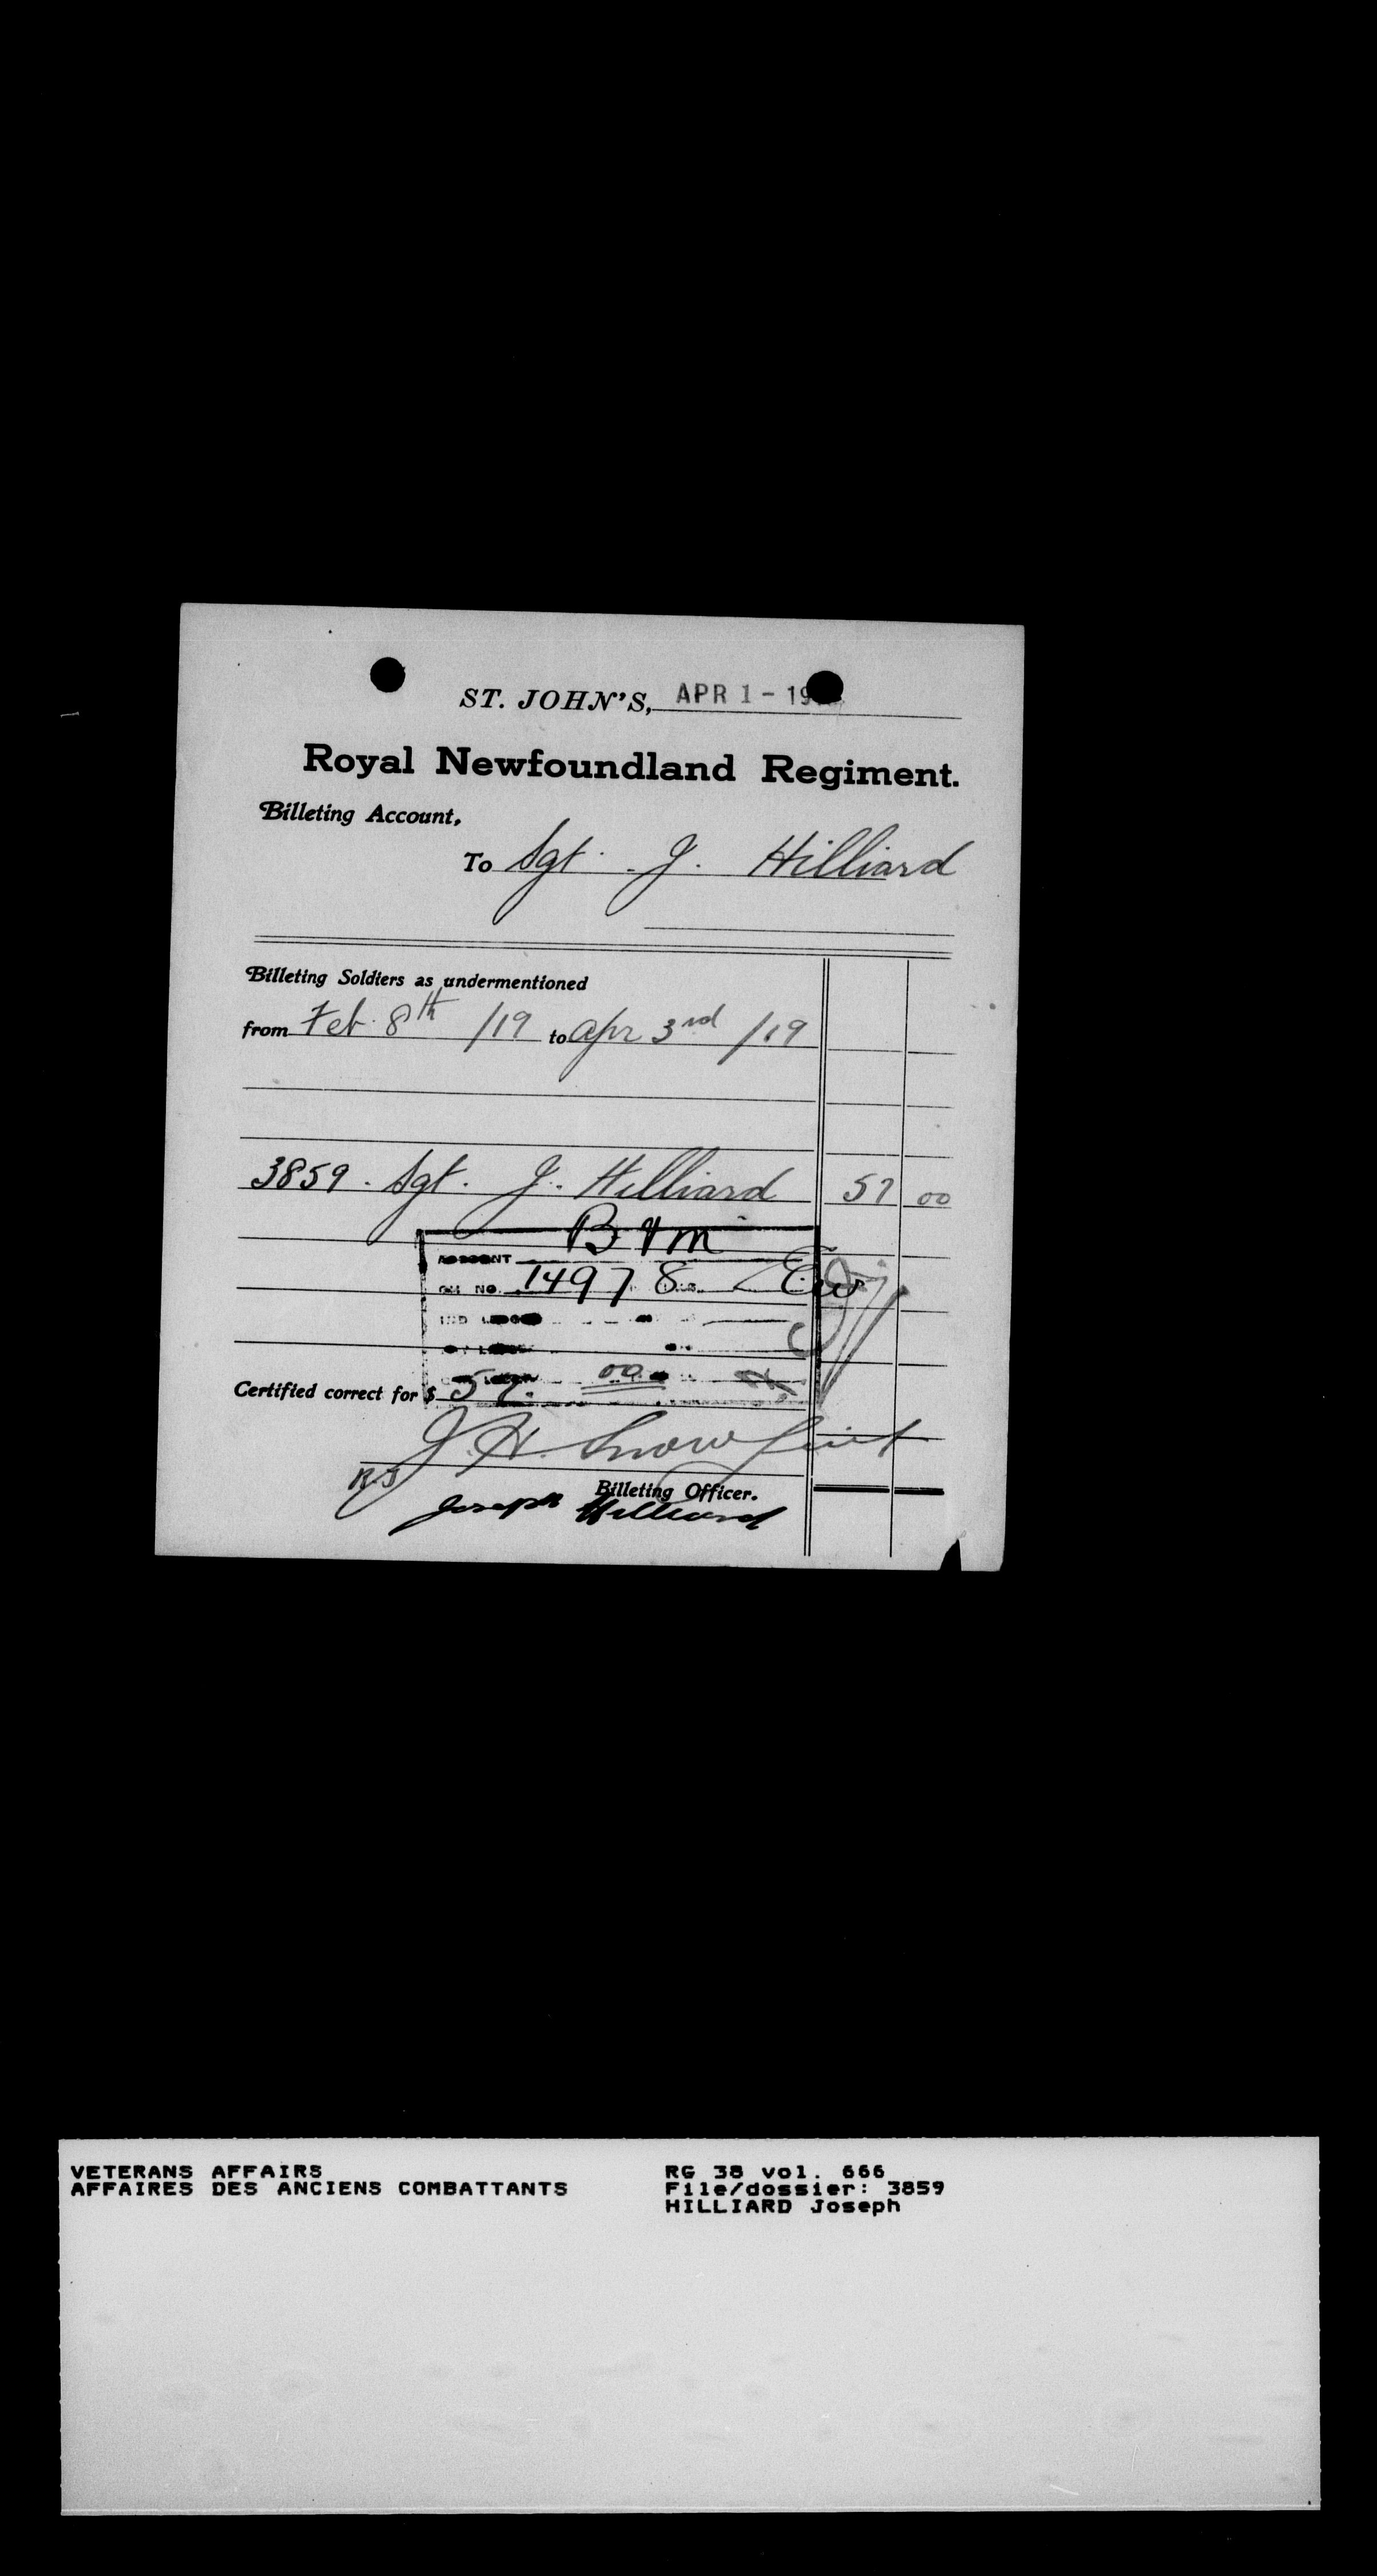 ST. JOHN'S, APR 1 - 19
Royal Newfoundland Regiment.
Billeting Account,
To Sgt. J. Hilliard
Billeting Soldiers as undermentioned
from Feb. 8th /19 to Apr 3rd /19
3859. Sgt. J. Hilliard 57 00
B & M
ACCOUNT
CH NO. 14978
IND LEDGER
Certified correct for $ 57. 00
J. H. Snow Lieut
Billeting Officer.
Joseph Hilliard
VETERANS AFFAIRS
AFFAIRES DES ANCIENS COMBATTANTS
RG 38 vol. 666
File/dossier: 3859
HILLIARD Joseph